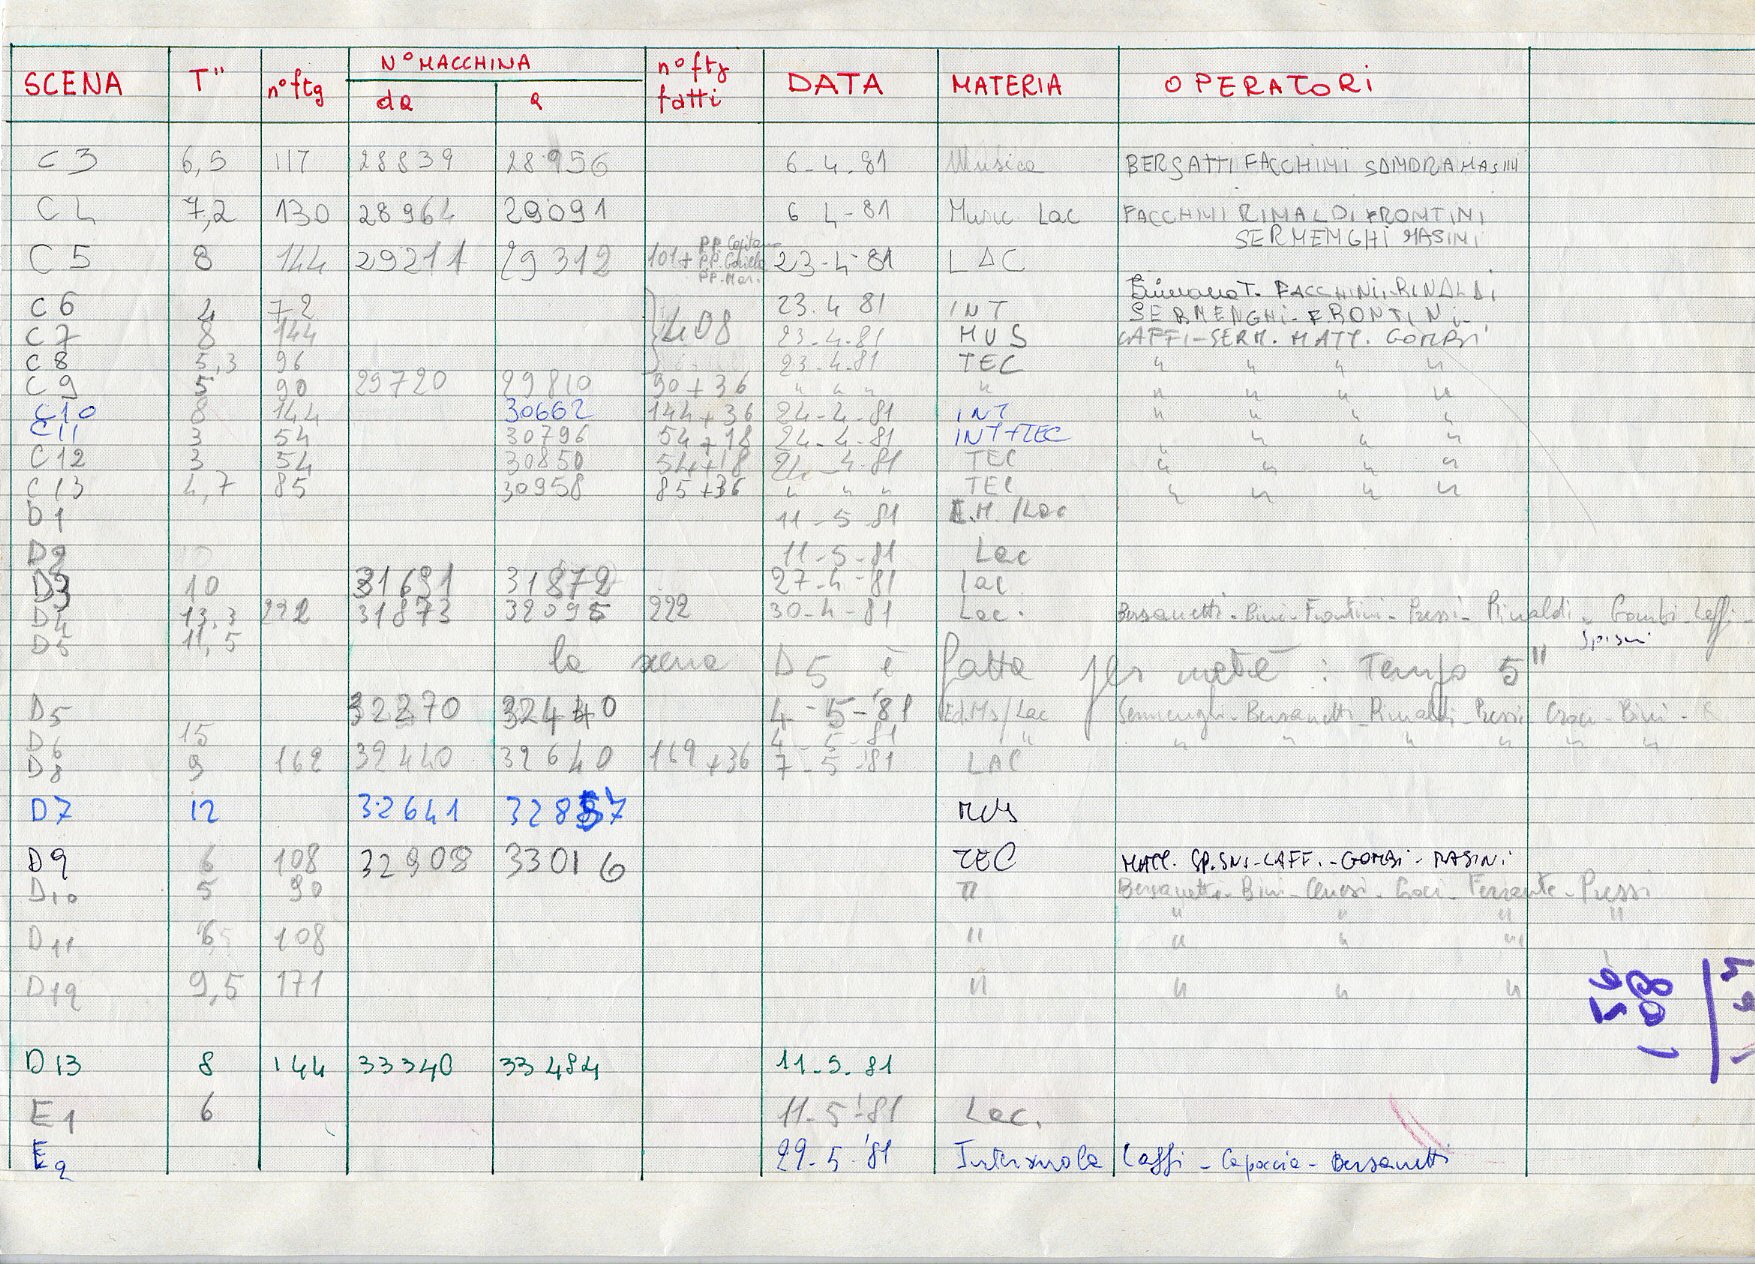 SCENA T" n°ftg N° MACCHINA da a n°ftg fatti DATA MATERIA OPERATORI
C3 6,5 117 28839 28956 6-4-81 Musica BERSATTI FACCHINI SANDRA MASINI
C4 7,2 130 28964 29091 6 4-81 Music Lac FACCHINI RINALDI FRONTINI
SERMENGHI MASINI
C5 8 144 29211 29312 101+ 23-4-81 LAC
C6 4 72 408 23.4 81 INT T. FACCHINI-RINALDI
SERMENGHI-FRONTINI-
C7 8 144 23-4-81 MUS CAFFI-SERM. MATT. GOMBI
C8 5,3 96 23-4-81 TEC " " " "
C9 5 90 29720 29810 90+36 " " " " " " " "
C10 8 144 30662 144+36 24-4-81 INT " " " "
C11 3 54 30796 54+18 24-4-81 INT+TEC " " " "
C12 3 54 30850 54+18 24-4-81 TEC " " " "
C13 4,7 85 30958 85+36 " " " TEC " " " "
D1 11-5-81 E.M./Lac
D2 11-5-81 Lac
D3 10 31691 31872 27-4-81 Lac
D4 13,3 222 31873 32095 222 30-4-81 Lac. Bersanetti-Bini-Frontini-Pressi-Rinaldi-Gombi-Caffi-
D5 11,5 Spisni
la scena D5 è fatta per metà : Tempo 5"
D5 32270 32440 4-5-'81 Ed.Ms/Lac Sermenghi-Bersanetti-Rinaldi-Pressi-Croci-Bini-R
D6 15 4-5-81 " " " " " " "
D8 9 162 32440 32640 169+36 7-5-'81 LAC
D7 12 32641 32857 MUS
D9 6 108 32908 33016 TEC MATT. SPISNI-CAFF.-GOMBI-MASINI
D10 5 90 " Bersanetti-Bini-Cenesi-Croci-Ferrante-Pressi
" " " "
D11 6 108 " " " "
D12 9,5 171 " " " "
D13 8 144 33340 33484 11-5-81
E1 6 11-5-'81 Lac.
E2 29-5-'81 Interscuola Caffi-Capaccia-Bersanetti